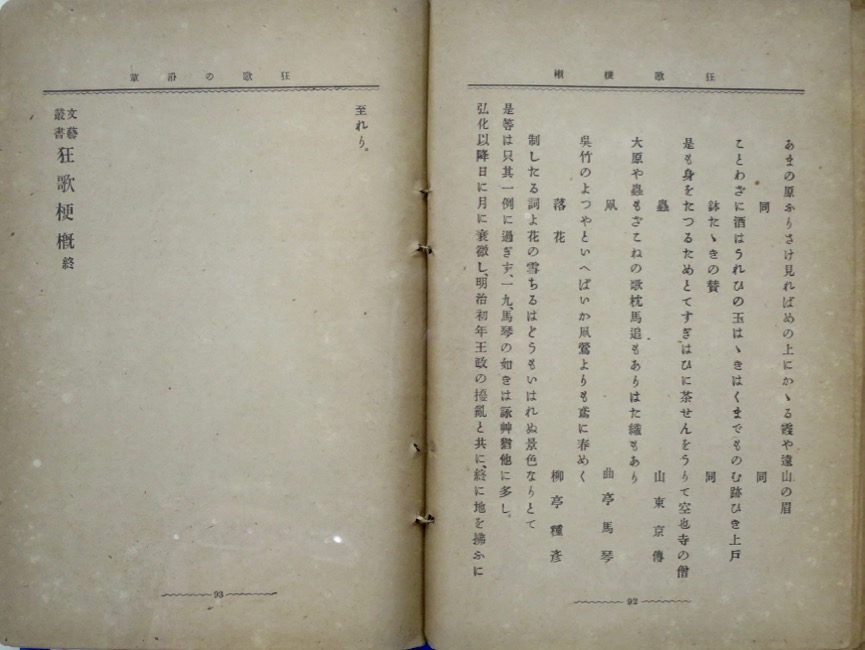 狂歌梗概
あまの原ふりさけ見ればめの上にかゝる霞や遠山の眉
同　同
ことわざに酒はうれひの玉はゝきはくまでものむ跡ひき上戸
鉢たゝきの賛　同
是も身をたつるためとてすぎはひに茶せんをうりて空也寺の僧
蟲　山東京傳
大原や蟲もざこねの歌枕馬追もありはた織もあり
凧　曲亭馬琴
呉竹のよつやといへばいか凧鶯よりも鳶に春めく
落花　柳亭種彦
制したる詞よ花の雪ちるはどうもいはれぬ景色なりとて
是等は只其一例に過ぎす、一九、馬琴の如きは詠艸猶他に多し。
弘化以降日に月に衰微し、明治初年王政の擾亂と共に、終に地を拂ふに
92
狂歌の沿革
至れり。
文藝叢書 狂歌梗概 終
93